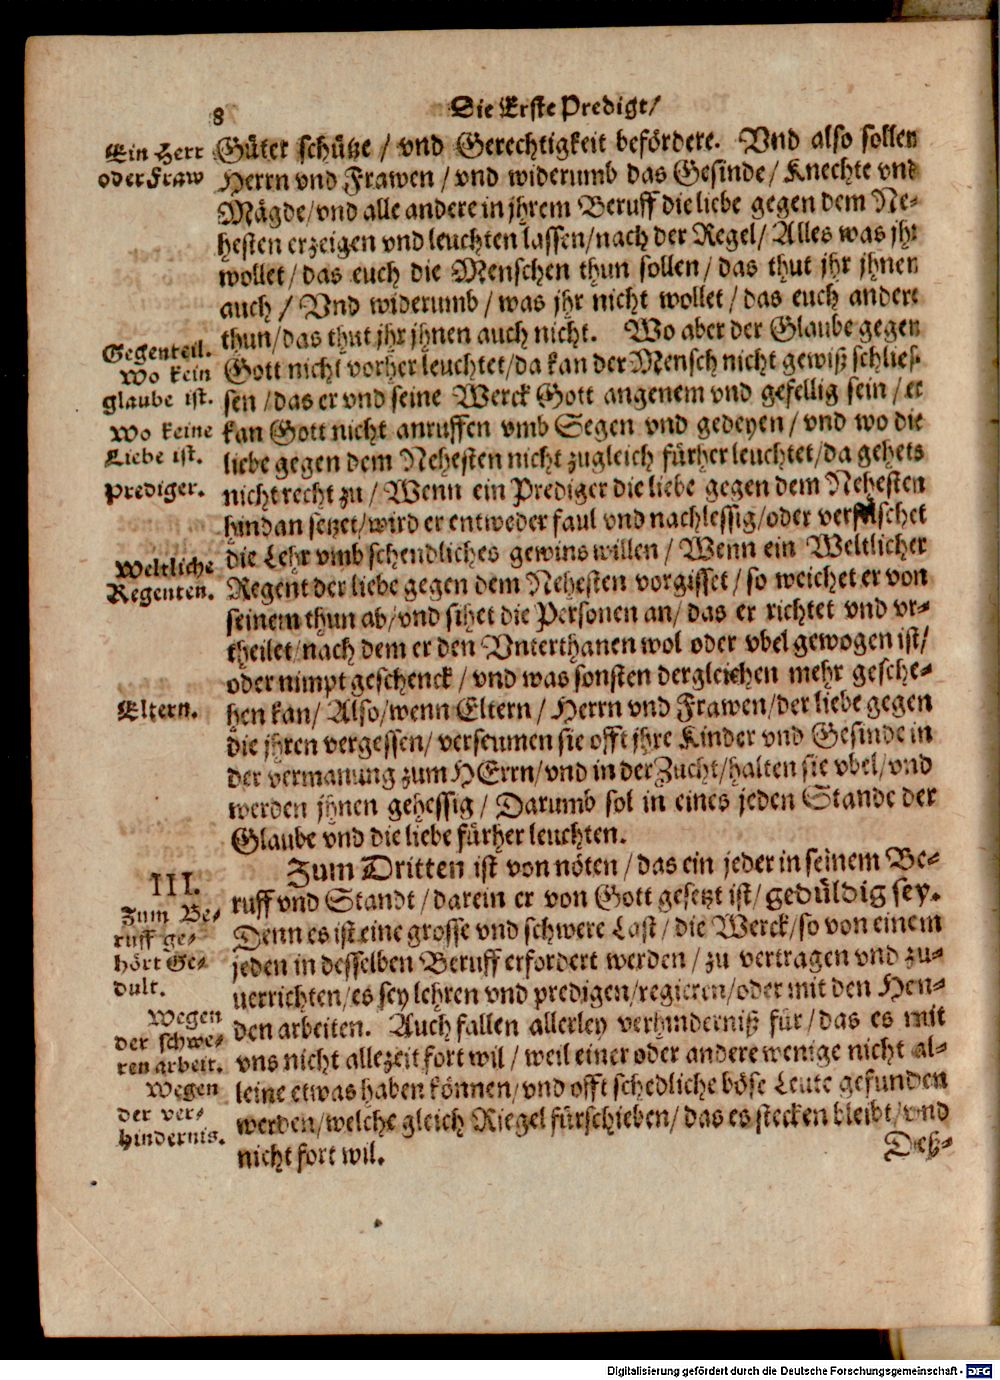 8
Die Erste Predigt/
Ein Herr
oder Fraw
Güter schütze / vnd Gerechtigkeit befördere. Vnd also sollen
Herrn vnd Frawen / vnd widerumb das Gesinde / Knechte vnd
Mägde/vnd alle andere in jhrem Beruff die liebe gegen dem Ne-
hesten erzeigen vnd leuchten lassen/nach der Regel/ Alles was jhr
wollet / das euch die Menschen thun sollen / das thut jhr jhnen
auch / Vnd widerumb / was jhr nicht wollet / das euch andere
thun/das thut jhr jhnen auch nicht. Wo aber der Glaube gegen
Gegenteil.
Wo kein
glaube ist.
Gott nicht vorher leuchtet/da kan der Mensch nicht gewiß schlies-
sen / das er vnd seine Werck Gott angenem vnd gefellig sein / er
Wo keine
Liebe ist.
kan Gott nicht anruffen vmb Segen vnd gedeyen / vnd wo die
liebe gegen dem Nehesten nicht zugleich fürher leuchtet/da gehets
Prediger.
nicht recht zu / Wenn ein Prediger die liebe gegen dem Nehesten
hindan setzet/wird er entweder faul vnd nachlessig/oder verfelschet
die Lehr vmb schendliches gewins willen / Wenn ein Weltlicher
Weltliche
Regenten.
Regent der liebe gegen dem Nehesten vorgisset / so weichet er von
seinem thun ab/vnd sihet die Personen an/ das er richtet vnd vr-
theilet/nach dem er den Vnterthanen wol oder vbel gewogen ist/
oder nimpt geschenck / vnd was sonsten dergleichen mehr gesche-
Eltern.
hen kan/ Also/wenn Eltern / Herrn vnd Frawen/der liebe gegen
die jhren vergessen/ verseumen sie offt jhre Kinder vnd Gesinde in
der vermanung zum HErrn/vnd in der Zucht/halten sie vbel/vnd
werden jhnen gehessig / Darumb sol in eines jeden Stande der
Glaube vnd die liebe fürher leuchten.
III.
Zum Be-
ruff ge-
hört Ge-
dult.
Zum Dritten ist von nöten / das ein jeder in seinem Be-
ruff vnd Standt / darein er von Gott gesetzt ist/ gedüldig sey.
Denn es ist eine grosse vnd schwere Last / die Werck/so von einem
jeden in desselben Beruff erfordert werden / zu vertragen vnd zu-
uerrichten/es sey lehren vnd predigen/regieren/oder mit den Hen-
Wegen
der schwe-
ren arbeit.
den arbeiten. Auch fallen allerley verhinderniß für / das es mit
vns nicht allezeit fort wil / weil einer oder andere wenige nicht al-
Wegen
der ver-
hindernis.
leine etwas haben können/vnd offt schedliche böse Leute gefunden
werden/welche gleich Riegel fürschieben/ das es stecken bleibt/vnd
nicht fort wil.
Deß-
Digitalisierung gefördert durch die Deutsche Forschungsgemeinschaft - DFG